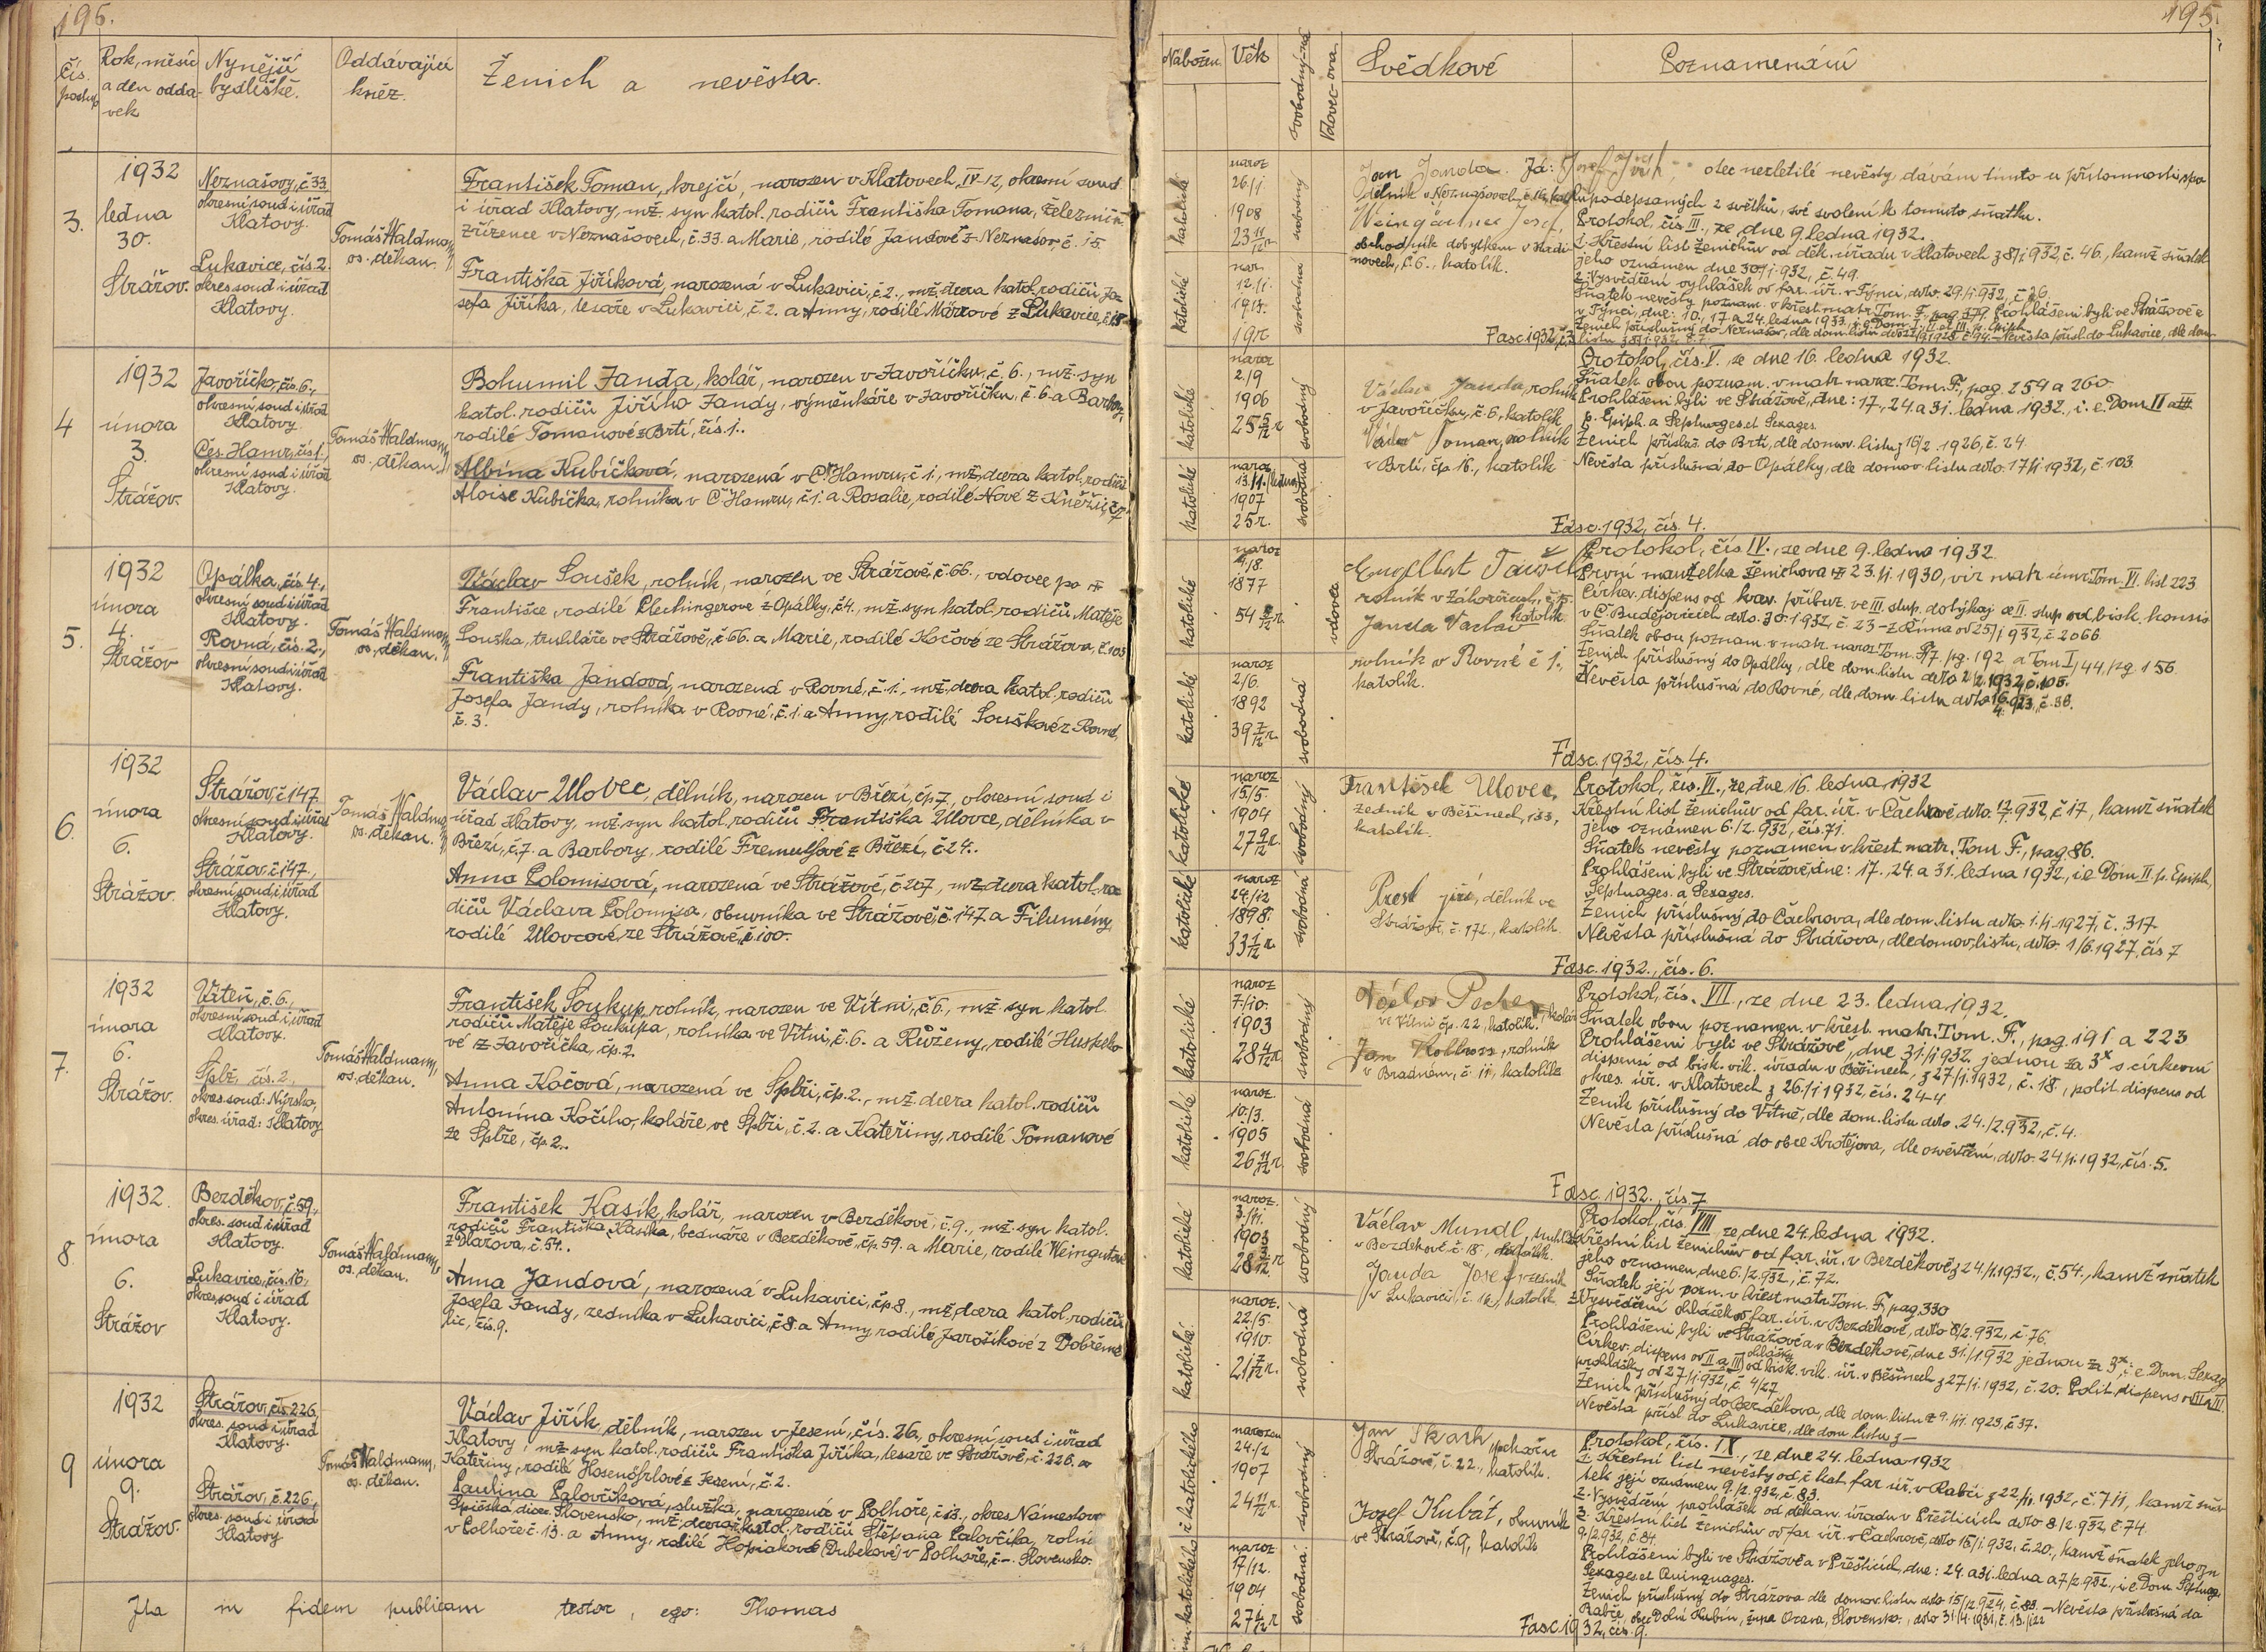 196.
Čís. postup
Rok, měsíc a den oddavek
Nynější bydliště.
Oddávající kněz.
Ženich a nevěsta.
3.
1932
ledna
30.
Strážov.
Neznašovy, č. 33
okresní soud i úřad
Klatovy.
Lukavice, čís. 2.
okres. soud i úřad
Klatovy.
Tomáš Waldmann,
os. děkan.
František Toman, krejčí, narozen v Klatovech, IV-12, okresní soud
i úřad Klatovy, mž. syn katol. rodičů Františka Tomana, železnič.
zřízence v Neznašovech, č. 33. a Marie, rodilé Jandové z Neznašov č. 15.
Františka Jiříková, narozená v Lukavici, č. 2., mž. dcera katol. rodičů Jo-
sefa Jiříka, tesaře v Lukavici, č. 2. a Anny, rodilé
4
1932
února
3.
Strážov.
Javoříčko, čís. 6.,
okresní soud i úřad
Klatovy
Čes. Hamr, čís. 1.,
okresní soud i úřad
Klatovy.
Tomáš Waldmann,
os. děkan.
Bohumil Janda, kolář, narozen v Javoříčku, č. 6., mž. syn
katol. rodičů Jiřího Jandy, výměnkáře v Javoříčku, č. 6. a Barbory,
rodilé Tomanové z Brtí, čís. 1..
Albína Kubíčková, narozená v Č. Hamru, č. 1., mž. dcera katol. rodičů
Aloise Kubíčka, rolníka v Č. Hamru, č. 1. a Rosalie, rodilé Nové z Kněžic, č. 7
5.
1932
února
4.
Strážov
Opálka, čís. 4.,
okresní soud i úřad
Klatovy.
Rovná, čís. 2.,
okresní soud i úřad
Klatovy.
Tomáš Waldmann,
os. děkan.
Václav Soušek, rolník, narozen ve Strážově, č. 66., vdovec po †
Františce, rodilé Plechingerové z Opálky, č. 4., mž. syn katol. rodičů Matěje
Souška, truhláře ve Strážově, č. 66. a Marie, rodilé Kočové ze Strážova, č. 103
Františka Jandová, narozená v Rovné, č. 1., mž. dcera katol. rodičů
Josefa Jandy, rolníka v Rovné, č. 1. a Anny, rodilé Souškové z Rovné,
č. 3.
6.
1932
února
6.
Strážov.
Strážov, č. 147
okresní soud i úřad
Klatovy.
Strážov č. 147.,
okresní soud i úřad
Klatovy.
Tomáš Waldmann,
os. děkan.
Václav Ulovec, dělník, narozen v Březí, čp. 7., okresní soud i
úřad Klatovy, mž. syn katol. rodičů Františka Ulovce, dělníka v
Březí, č. 7. a Barbory, rodilé z Březí, č. 24..
Anna Polomisová, narozená ve Strážově, č. 207, mž. dcera katol. ro-
dičů Václava Polomisa, obuvníka ve Strážově, č. 147 a Filumény,
rodilé Ulovcové, ze Strážově, č. 100.
7.
1932
února
6.
Strážov.
Víteň, č. 6.,
okresní soud i úřad
Klatovy.
Splž, čís. 2.,
okres. soud: Nýrsko,
okres. úřad: Klatovy
Tomáš Waldmann,
os. děkan.
František Soukup, rolník, narozen ve Vítni, č. 6., mž. syn katol.
rodičů Matěje Soukupa, rolníka ve Vítni, č. 6. a Růženy, rodilé
vé z Javoříčka, čp. 2.
Anna Kočová, narozená ve Splži, čp. 2., mž. dcera katol. rodičů
Antonína Kočího, koláře ve Splži, č. 2. a Kateřiny, rodilé Tomanové
ze Splže, čp. 2..
8
1932.
února
6.
Strážov
Bezděkov, č. 59.,
okres. soud i úřad
Klatovy.
Lukavice, čís. 16,
okres. soud i úřad
Klatovy.
Tomáš Waldmann,
os. děkan.
František Kasík, kolář, narozen v Bezděkově, č. 9., mž. syn katol.
rodičů Františka Kasíka, bednáře v Bezděkově, čp. 59. a Marie, rodilé
z Dlažova, č. 54..
Anna Jandová, narozená v Lukavici, čp. 8., mž. dcera katol. rodičů
Josefa Jandy, zedníka v Lukavici, č. 8. a Anny, rodilé Jarošíkové z Dobřemi-
lic, čís. 9.
9
1932
února
9.
Strážov.
Strážov, čís. 226,
okres. soud i úřad
Klatovy.
Strážov, č. 226,
okres. soud i úřad
Klatovy
Tomáš Waldmann,
os. děkan.
Václav Jiřík, dělník, narozen v Jesení, čís. 26, okresní soud i úřad
Klatovy, mž. syn katol. rodičů Františka Jiříka, tesaře ve Strážově, č. 226. a
Kateřiny, rodilé z Jesení, č. 2.
Paulina Palovčíková, služka, narozená v Polhoře, č. 13., okres Námestovo
Slovensko, mž. dcera katol. rodičů Štěpana Palovčíka, rolní
v Polhoře č. 13. a Anny, rodilé (Dubekové) v Polhoře, č. – Slovensko.
Ita in fidem publicam testor, ego: Thomas
195.
Nábožen.
Věk
svobodný-ná
Vdovec-ova
Svědkové
Poznamenání
katolické
naroz
26/1
1908
23 11/12 r.
svobodný
katolické
nar.
12/1.
1913.
19 r.
svobodná
Jan Janda
dělník v Neznašovech, č. 12, katolík
Weingärtner Josef,
obchodník dobytkem v
č. 6., katolík.
Já: otec nezletilé nevěsty dávám tímto u přítomnosti spo-
lupodepsaných 2 svědků, své svolení k tomuto sňatku.
Protokol, čís. III., ze dne 9. ledna 1932.
1. Křestní list ženichův od děk. úřadu v Klatovech z 8/1. 932, č. 46., kamž sňatek
jeho oznámen dne 30/1. 932, č. 49.
2. Vysvědčení vyhlášek od far. úř. v Týnci, dto. 29./1. 932, č. 26.
Sňatek nevěsty poznam. v křest. matr. Tom. F., pag. 379. Prohlášeni byli ve Strážově a
v Týnci, dne: 10., 17. a 24. ledna
Ženich příslušný do Neznašov, dle dom. listu
Fasc. 1932, č. 3
katolické
naroz
2./9
1906
25 5/12 r.
svobodný
katolické
naroz
13./1. (ledna)
1907
25 r.
svobodná
Václav Janda, rolník
v Javoříčku, č. 6, katolík
Václav Toman, rolník
v Brtí, čp. 16., katolík
Protokol, čís. V., ze dne 16. ledna 1932.
Sňatek obou poznam. v matr. naroz. Tom. F., pag. 254 a 260.
Prohlášeni byli ve Strážově, dne: 17., 24. a 31. ledna 1932., i. e. Dom. II a III
p. Epiph. a Septuages. et Sexages.
Ženich přísluš. do Brtí, dle domov. listu z 16/2. 1926, č. 24.
Nevěsta příslušná do Opálky, dle domov. listu dto. 17/1. 1932, č. 103.
Fasc. 1932, čís. 4.
katolické
naroz
1877
vdovec
katolické
naroz
2/6.
1892
39 7/12 r.
svobodná
Engelbert
rolník v
katolík
Janda Václav
rolník v Rovné č. 1.,
katolík.
Protokol, čís. IV., ze dne 9. ledna 1932.
První manželka ženichova † 23./1. 1930, viz matr. úmr. Tom. VI. list 223
Církev. dispens od krev. příbuz. ve III. stup. dotýkaj. se II. stup. od bisk. konsis.
v Č. Budějovicích dto. 30. 1. 932, č. 23 – z Říma od 25/1. 932, č. 2066.
Sňatek obou poznam. v matr. naroz. Tom. pg. 192 a Tom. I, 44, pg. 156
Ženich příslušný do Opálky, dle dom. listu dto. 2/2. 1932, č. 105.
Nevěsta příslušná do Rovné, dle dom. listu dto. č. 38.
Fasc. 1932, čís. 4.
katolické
naroz
15/5.
1904
27 9/12 r.
svobodný
katolické
naroz
24./12
1898.
33 1/12 r.
svobodná
František Ulovec,
zedník v Běšinech, č. 33,
katolík.
Prest Jiří, dělník ve
Strážově, č. 172., katolík.
Protokol, čís. VI., ze dne 16. ledna 1932
Křestní list ženichův od far. úř. v Čachrově, dto. č. 17, kamž sňatek
jeho oznámen 6./2. 932, čís. 71.
Sňatek nevěsty poznamen. v křest. matr. Tom. F., pag. 86.
Prohlášeni byli ve Strážově, dne: 17., 24. a 31. ledna 1932., i. e. Dom. II. p. Epiph.,
Septuages. a Sexages.
Ženich příslušný do Čachrova, dle dom. listu dto. 1./4. 1927, č. 317.
Nevěsta příslušná do Strážova, dle domov. listu, dto. 1/6. 1927, čís. 7
Fasc. 1932., čís. 6.
katolické
naroz
7./10.
1903
28 4/12 r.
svobodný
katolické
naroz.
10./3.
1905
26 11/12 r.
svobodná
Václav Pecher, kolář
ve Vítni čp. 22, katolík.
Jan rolník
v Bradném, č. 11, katolík
Protokol, čís. VII., ze dne 23. ledna 1932.
Sňatek obou poznamen. v křest. matr. Tom. F., pag. 191 a 223
Prohlášeni byli ve Strážově, dne 31./1. 932 jednou za 3x s církevní
dispensí od bisk. vik. úřadu v Běšinech, z 27/1. 1932, č. 18., polit. dispens od
okres. úř. v Klatovech z 26./1. 1932, čís. 24-4
Ženich příslušný do Vítně, dle dom. listu dto. 24./2. 932, č. 4.
Nevěsta příslušná do obce Hvotějova, dle osvědčení, dto. 24./1. 1932, čís. 5.
Fasc. 1932., čís. 7
katolické
naroz.
1903
svobodný
katolické
naroz.
22./5.
1910.
21 7/12 r.
svobodná
Václav Mundl, truhlář
v Bezděkově č. 18., katolík.
Janda Josef, zedník
v Lukavici, č. 16, katolík
Protokol, čís. VIII, ze dne 24. ledna 1932.
Křestní list ženichův od far. úř. v Bezděkově, z 24./1. 1932., č. 54., kamž sňatek
jeho oznamen, dne 6./2. 932, č. 72.
Sňatek její pozn. v křest. matr. Tom. F, pag. 330
2. Vysvědčení ohlášek od far. úř. v Bezděkově, dto. 6/2. 932, č. 76.
Prohlášeni byli ve Strážově a v Bezděkově, dne 31./1. 1932 jednou za 3x i. e. Dom. Sexag.
Církev. dispens od II. a III. ohlášky od bisk. vik. úř. v Běšinech z 27/1. 1932, č. 20. Polit. dispens od II. a III.
prohlášky od 27/1. 932, č. 4/27
Ženich příslušný do Bezděkova, dle dom. listu z 9./11. 1923, č. 37.
Nevěsta přísl. do Lukavice, dle dom. listu z –
katolického
narozen
24./2
1907
24 11/12 r.
svobodný
katolického
naroz
17/12.
1904
svobodná
Jan
Strážově č. 22., katolík.
Josef Kubát, obuvník
ve Strážově, č. 9, katolík
Protokol, čís. IX., ze dne 24. ledna 1932
1. Křestní list nevěsty od ř. kat. far. úř. v Rabči z 22/1. 1932, č. 711, kamž sňa-
tek její oznámen 9./2. 932, č. 83.
2. Vysvědčení prohlášek od děkan. úřadu v Přešticích dto. 8/2. 932, č. 74.
3. Křestní list ženichův od far. úř. v Čachrově, dto. 15/1. 932, č. 20., kamž sňatek jeho ozn.
9./2. 932, č. 84.
Prohlášeni byli ve Strážově a v Přešticích, dne: 24. a 31. ledna a 7/2. 932., i. e. Dom. Septuag.
Sexages. et Quinquages.
Ženich příslušný do Strážova dle domov. listu dto 15/12. 924, č. 83. – Nevěsta příslušná do
Rabče, obec Dolní Kubín, župa Orava, Slovensko., dto 31/4. 1931, č. 13./122
Fasc. 1932, čís. 9.